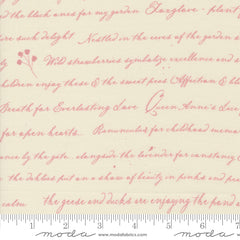 d the black ones for my garden Foxglove - plant
ore such delight. Nestled in the eves of the garden s
Wild strawberries symbolize excellence and
children enjoy these & the sweet peas Affection & bl
Breath for Everlasting Love Queen Anne's Lace
for open hearts. Ranunculus for childhood memor
ence by the gate alongside the lavender for constancy
the dahlias put on a show of beauty in pinks and pea
calm. the geese and ducks are enjoying the pond
1 2 3 4 5
moda www.modafabrics.com moda